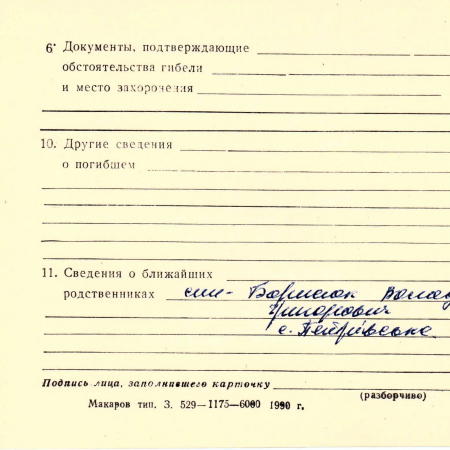 6. Документы, подтверждающие
обстоятельства гибели
и место захоронения
10. Другие сведения
о погибшем
11. Сведения о ближайших
родственниках син -
Григорович
с. Петрівське
Подпись лица, заполнившего карточку
(разборчиво)
Макаров тип. З. 529—1175—6000 1990 г.